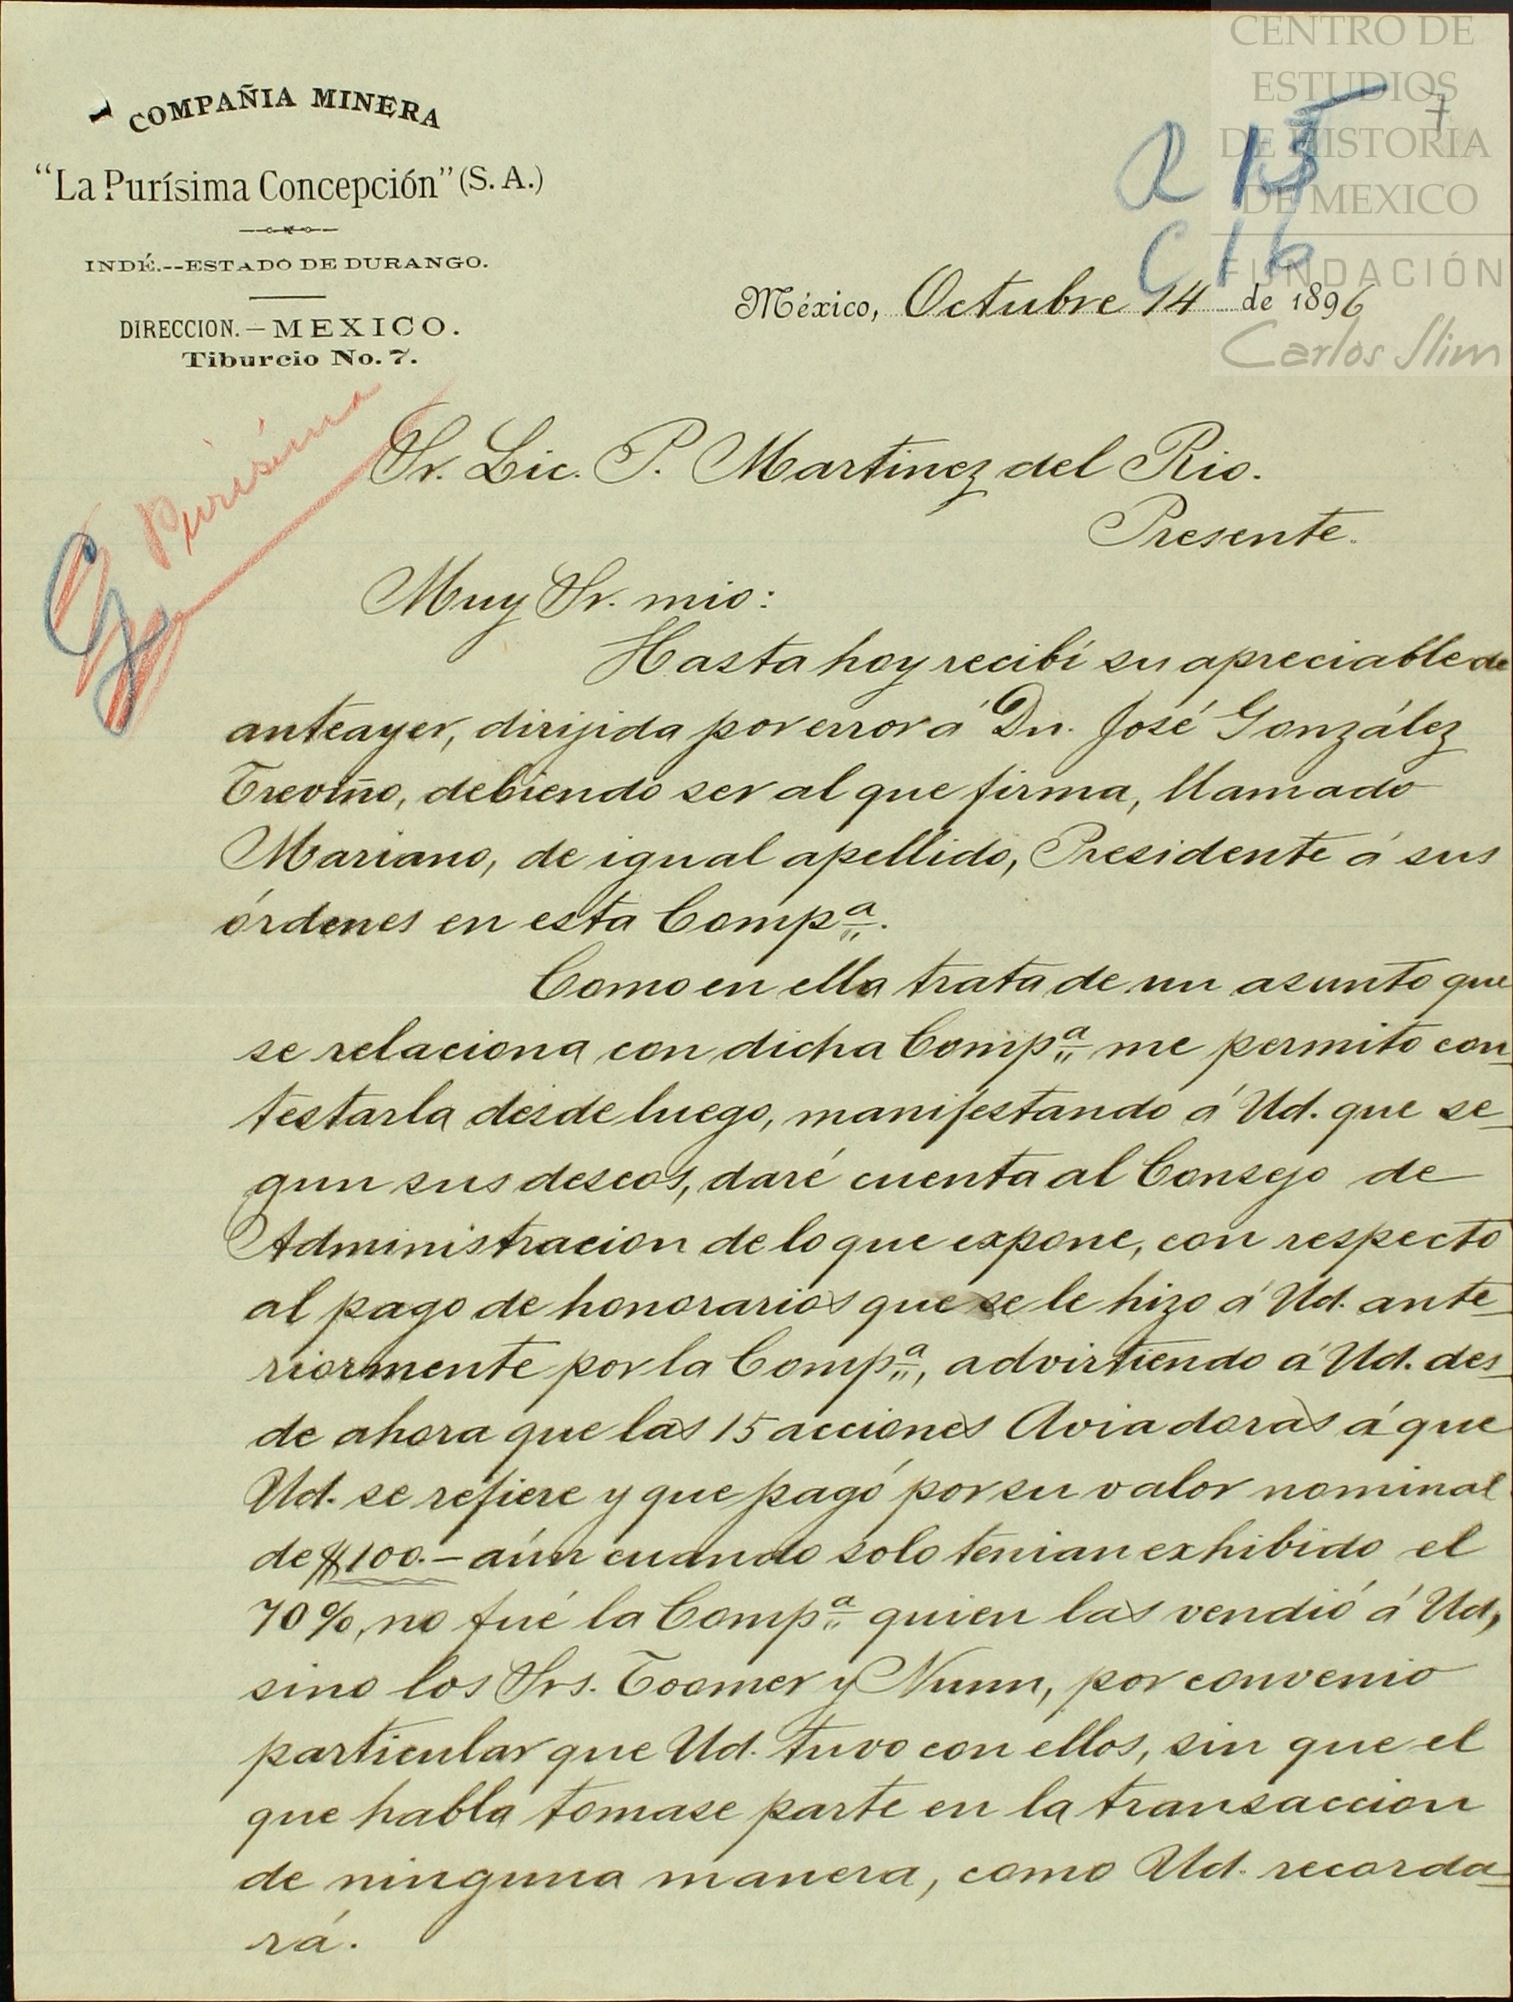 COMPAÑIA MINERA
"La Purísima Concepción" (S. A.)
INDÉ.--ESTADO DE DURANGO.
DIRECCION.—MEXICO.
Tiburcio No. 7.
CENTRO DE
ESTUDIOS
DE HISTORIA
DE MEXICO
FUNDACIÓN
Carlos Slim
7
a 15
C 16
México, Octubre 14 de 1896
Purísima
Sr. Lic. P. Martinez del Rio.
Presente.
Muy Sr. mio:
Hasta hoy recibí su apreciable de
anteayer, dirijida por error á Dn. José González
Treviño, debiendo ser al que firma, llamado
Mariano, de igual apellido, Presidente á sus
órdenes en esta Compª.
Como en ella trata de un asunto que
se relaciona con dicha Compª me permito con_
testarla desde luego, manifestando á Ud. que se_
gun sus deseos, daré cuenta al Consejo de
Administracion de lo que expone, con respecto
al pago de honorarios que se le hizo á Ud. ante_
riormente por la Compª, advirtiendo á Ud. des_
de ahora que las 15 acciones Aviadoras á que
Ud. se refiere y que pagó por su valor nominal
de $100.— aún cuando solo tenian exhibido el
70%, no fué la Compª quien las vendió á Ud,
sino los Srs. Toomer y Nunn, por convenio
particular que Ud. tuvo con ellos, sin que el
que habla tomase parte en la transaccion
de ninguna manera, como Ud. recorda_
rá.